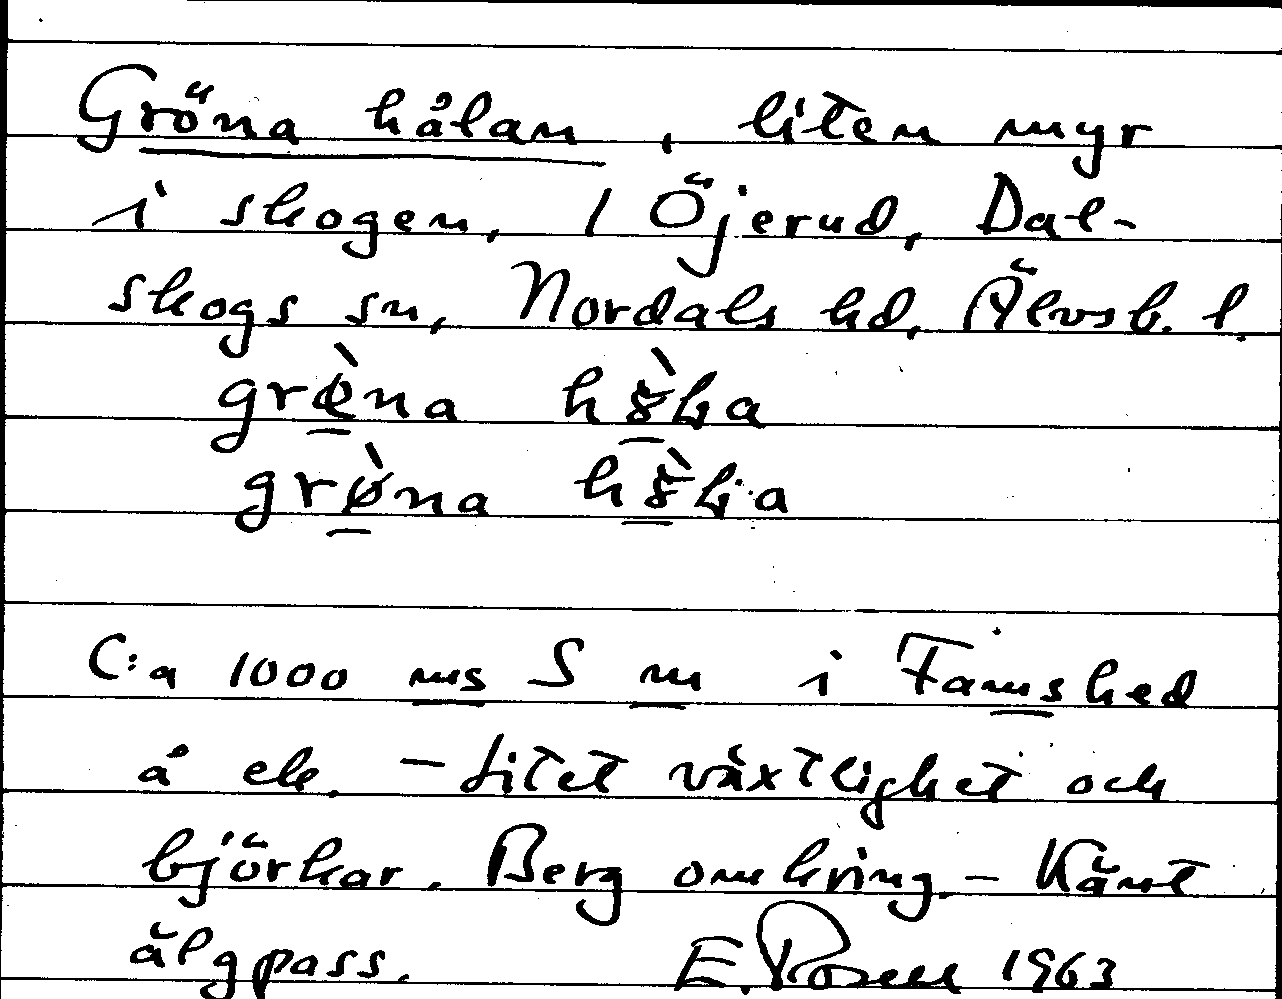 Gröna hålan, liten myr
i skogen, 1 Öjerud, Dal-
skogs sn, Nordals hd, Älvsb. l.
grø̀na
C:a 1000 ms S m i Famshed
å ek. - Litet växtlighet och
björkar. Berg omkring. - Känt
älgpass. E. Rosell 1963